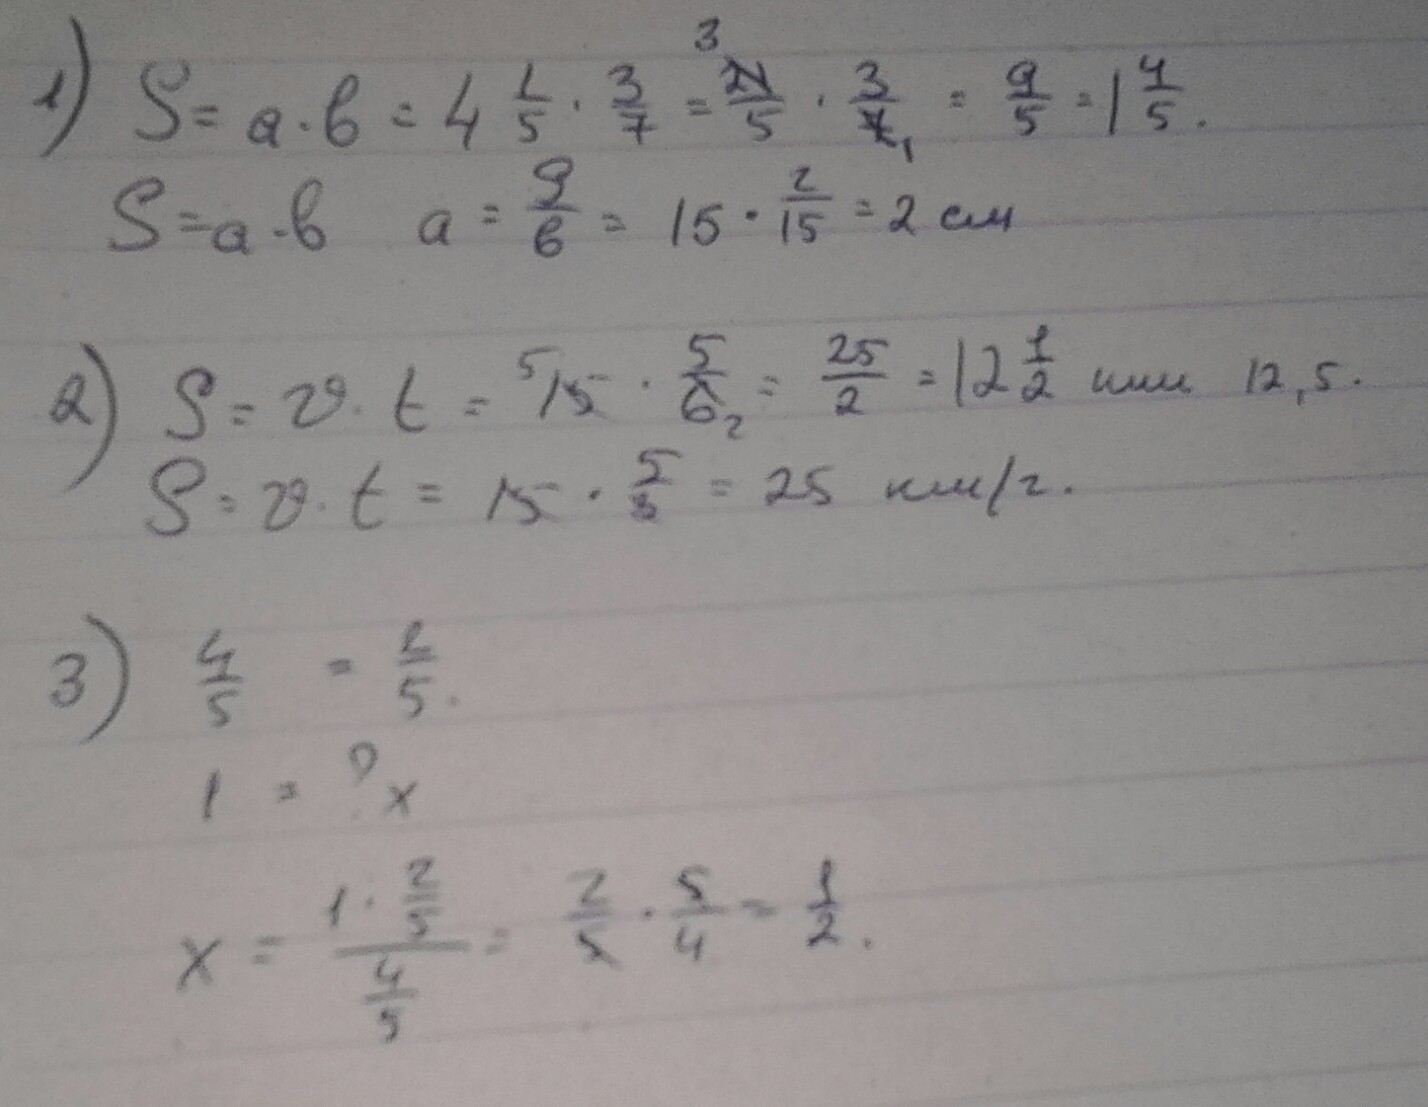 1) S = a · b = 4 1/5 · 3/7 = 3 21/5 · 3/7 1 = 9/5 = 1 4/5.
S = a · b a = S/b = 15 · 2/15 = 2 см
2) S = v · t = 5 15 · 5/6 2 = 25/2 = 12 1/2 или 12,5.
S = v · t = 15 · 5/3 = 25 км/г.
3) 4/5 = 2/5.
1 = ? x
x = (1 · 2/5)/(4/5) = 2/5 · 5/4 = 1/2.